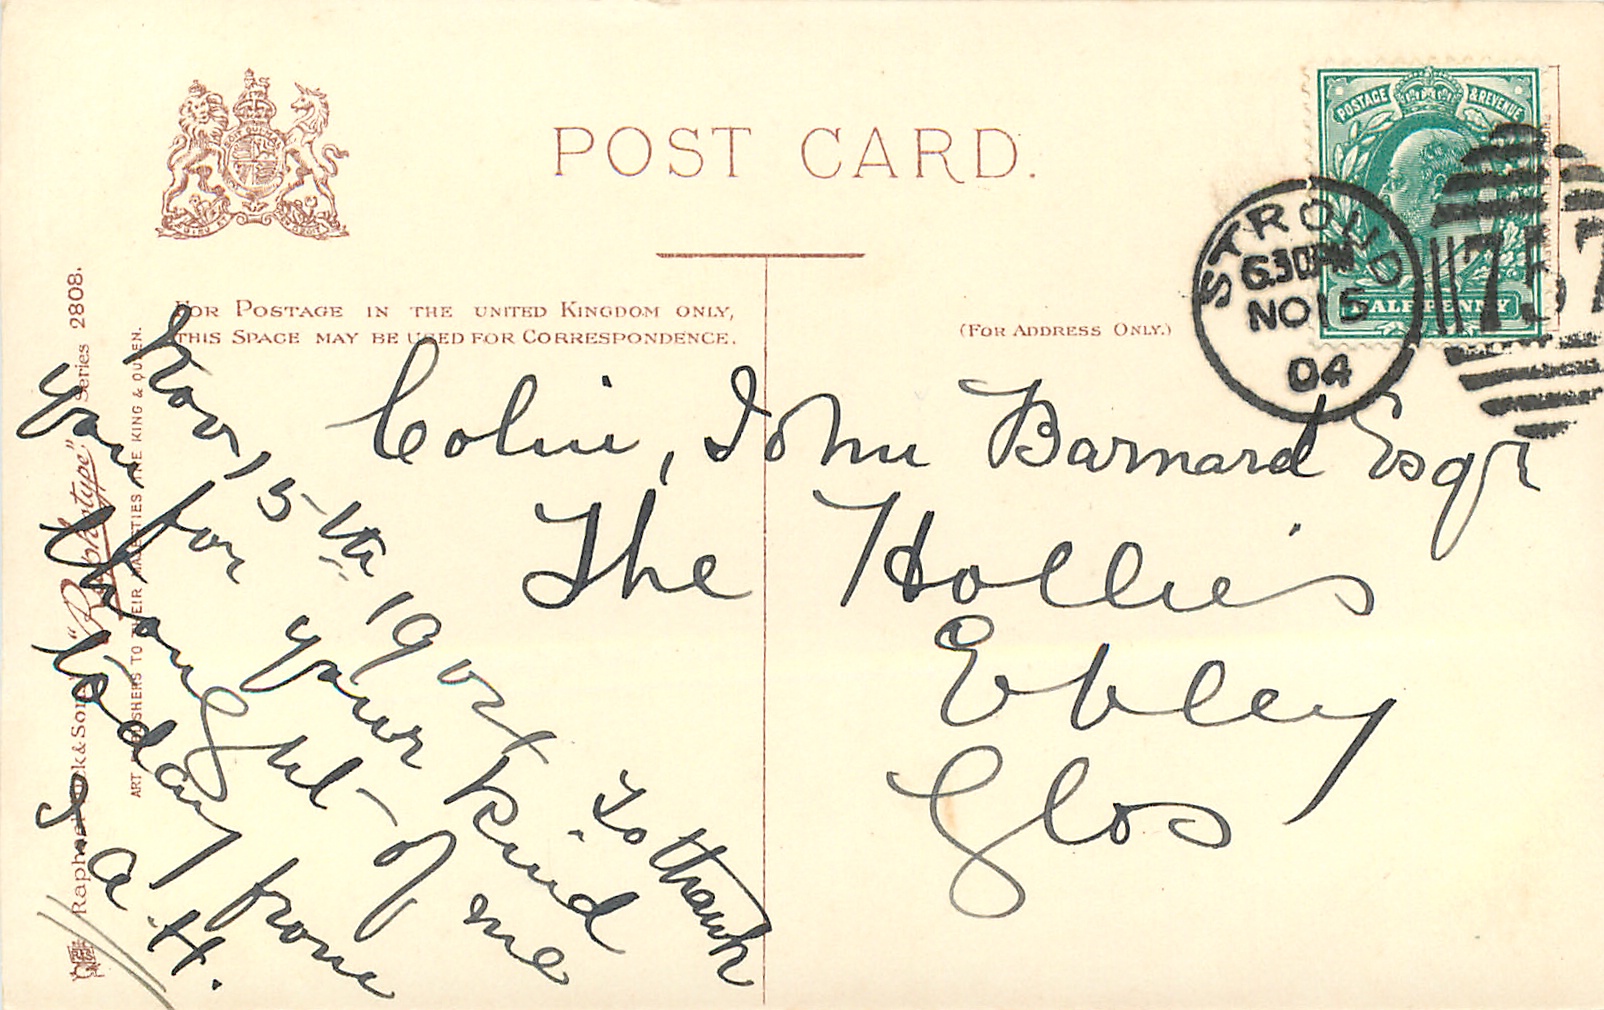 POST CARD.
FOR POSTAGE IN THE UNITED KINGDOM ONLY,
THIS SPACE MAY BE USED FOR CORRESPONDENCE.
(FOR ADDRESS ONLY.)
POSTAGE & REVENUE
HALFPENNY
STROUD
6.30PM
NO 15
04
757
Colin, John Barnard Esqr
The Hollies
Ebley
Glos
Nov 15th 1904 To thank
you for your kind
thought of me
today from
I. A. H.
Raphael Tuck & Sons' "Raphotype" Series 2808.
ART PUBLISHERS TO THEIR MAJESTIES THE KING & QUEEN.